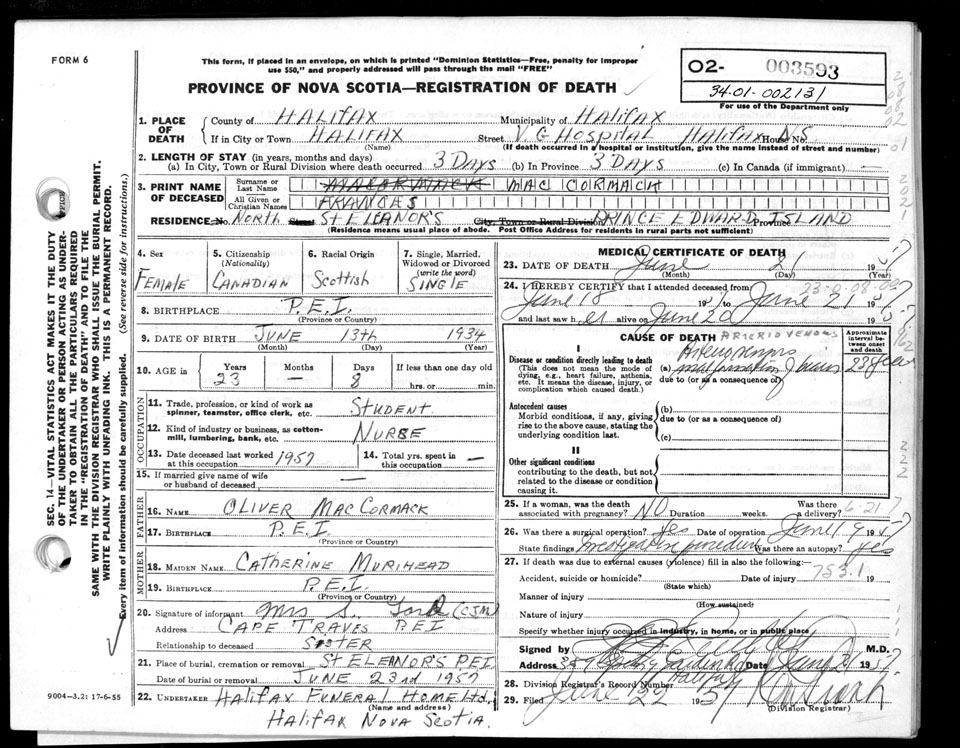 FORM 6
This form, if placed in an envelope, on which is printed "Dominion Statistics—Free, penalty for improper
use $50," and properly addressed will pass through the mail "FREE"
PROVINCE OF NOVA SCOTIA—REGISTRATION OF DEATH
O2- 003593
34-01-002131
For use of the Department only
SEC. 14—VITAL STATISTICS ACT MAKES IT THE DUTY
OF THE UNDERTAKER OR PERSON ACTING AS UNDER-
TAKER TO OBTAIN ALL THE PARTICULARS REQUIRED
IN THE "REGISTRATION OF DEATH" AND TO FILE THE
SAME WITH THE DIVISION REGISTRAR WHO SHALL ISSUE THE BURIAL PERMIT.
WRITE PLAINLY WITH UNFADING INK. THIS IS A PERMANENT RECORD.
Every item of information should be carefully supplied. (See reverse side for instructions.)
1. PLACE OF DEATH
County of HALIFAX Municipality of HALIFAX
If in City or Town HALIFAX Street V.G HOSPITAL HALIFAX House No. N.S
(Name) (If death occurred in a hospital or institution, give the name instead of street and number)
2. LENGTH OF STAY (in years, months and days)
(a) In City, Town or Rural Division where death occurred 3 DAYS (b) In Province 3 DAYS (c) In Canada (if immigrant)
3. PRINT NAME OF DECEASED
Surname or Last Name MACORMACK MAC CORMACK
All Given or Christian Names FRANCES
RESIDENCE No. NORTH Street ST ELEANOR'S City, Town or Rural Division PRINCE EDWARD ISLAND Province
(Residence means usual place of abode. Post Office Address for residents in rural parts not sufficient)
4. Sex FEMALE
5. Citizenship (Nationality) CANADIAN
6. Racial Origin SCOTTISH
7. Single, Married, Widowed or Divorced (write the word) SINGLE
8. BIRTHPLACE P.E.I.
(Province or Country)
9. DATE OF BIRTH JUNE 13th 1934
(Month) (Day) (Year)
10. AGE in Years 23 Months — Days 8 If less than one day old
hrs. or min.
OCCUPATION
11. Trade, profession, or kind of work as spinner, teamster, office clerk, etc. STUDENT
12. Kind of industry or business, as cotton-mill, lumbering, bank, etc. NURSE
13. Date deceased last worked at this occupation 1957
14. Total yrs. spent in this occupation —
15. If married give name of wife or husband of deceased —
FATHER
16. Name OLIVER MAC CORMACK
17. BIRTHPLACE P.E.I.
(Province or Country)
MOTHER
18. MAIDEN NAME CATHERINE MUIRHEAD
19. BIRTHPLACE P.E.I.
(Province or Country)
20. Signature of informant Mrs S.
Address CAPE TRAVES PEI
Relationship to deceased SISTER
21. Place of burial, cremation or removal ST ELEANOR'S P.E.I.
Date of burial or removal JUNE 23rd 1957
22. UNDERTAKER HALIFAX FUNERAL HOME LTD,
(Name and address)
HALIFAX NOVA SCOTIA.
9004—3.2: 17-6-55
MEDICAL CERTIFICATE OF DEATH
23. DATE OF DEATH June 21 1957
(Month) (Day) (Year)
24. I HEREBY CERTIFY that I attended deceased from
June 18 1957 to June 21 1957
and last saw her alive on June 20 1957
CAUSE OF DEATH ARTERIOVENOUS
Approximate interval between onset and death
I
Disease or condition directly leading to death
(This does not mean the mode of dying, e.g., heart failure, asthenia, etc. It means the disease, injury, or complication which caused death.)
(a) Arteriovenous
malformation 23 years
due to (or as a consequence of)
Antecedent causes
Morbid conditions, if any, giving rise to the above cause, stating the underlying condition last.
(b)
due to (or as a consequence of)
(c)
II
Other significant conditions
contributing to the death, but not related to the disease or condition causing it.
25. If a woman, was the death associated with pregnancy? NO Duration weeks. Was there a delivery?
26. Was there a surgical operation? Yes Date of operation June 19 1957
State findings Investigation procedure Was there an autopsy? Yes
27. If death was due to external causes (violence) fill in also the following:—
753.1
Accident, suicide or homicide? Date of injury 19
(State which)
Manner of injury
(How sustained)
Nature of injury
Specify whether injury occurred in industry, in home, or in public place
Signed by M.D.
Address Date June 1957
28. Division Registrar's Record Number
29. Filed June 22 1957
(Division Registrar)